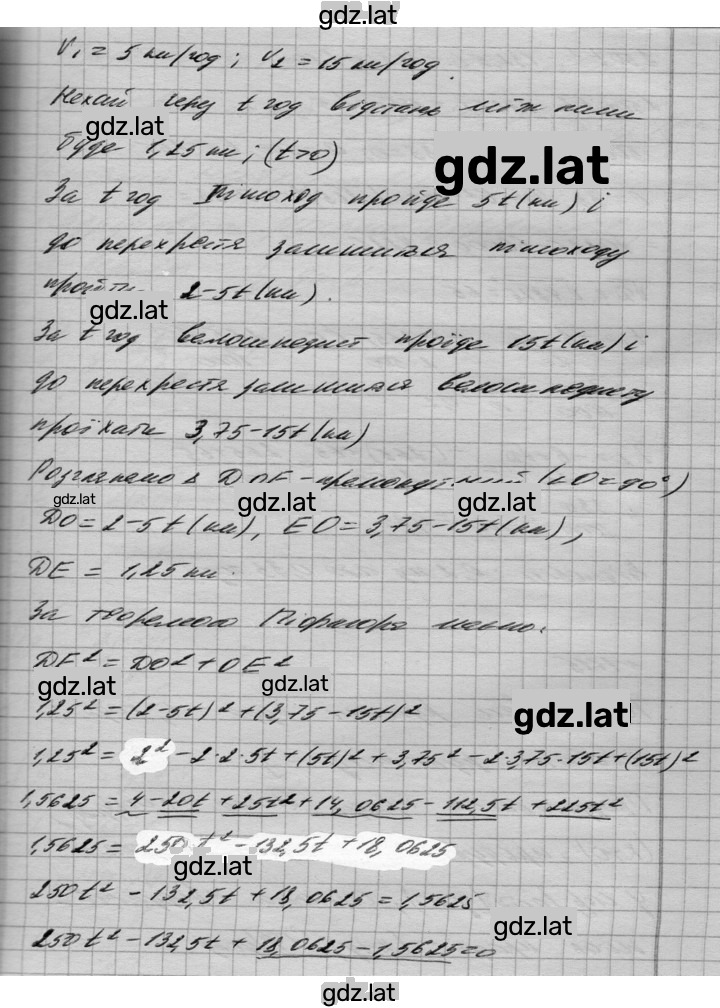 gdz.lat
V₁ = 5 км/год; V₂ = 15 км/год.
Нехай через t год відстань між ними
gdz.lat
буде 1,25 км; (t>0)
gdz.lat
За t год пішоход пройде 5t (км) і
до перехрестя залишиться пішоходу
пройти 2-5t (км).
gdz.lat
За t год велосипедист проїде 15t (км) і
до перехрестя залишиться велосипедисту
проїхати 3,75-15t (км)
Розглянемо Δ DOE - прямокутний (∠O=90°)
gdz.lat gdz.lat
DO = 2-5t (км), EO = 3,75-15t (км),
DE = 1,25 км.
За теоремою Піфагора маємо:
DE² = DO² + OE²
gdz.lat gdz.lat
1,25² = (2-5t)² + (3,75-15t)²
gdz.lat
1,25² = 2² - 2·2·5t + (5t)² + 3,75² - 2·3,75·15t + (15t)²
1,5625 = 4 - 20t + 25t² + 14,0625 - 112,5t + 225t²
1,5625 = 250t² - 132,5t + 18,0625
gdz.lat
250t² - 132,5t + 18,0625 = 1,5625
gdz.lat
250t² - 132,5t + 18,0625 - 1,5625 = 0
gdz.lat